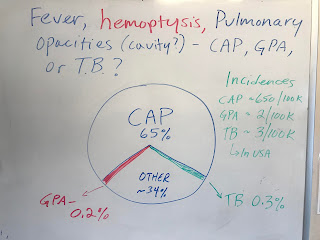 Fever, hemoptysis, Pulmonary
Opacities (cavity?) - CAP, GPA,
or T.B.?
Incidences
CAP = 650/100K
GPA = 2/100K
TB ~ 3/100K
↳ in USA
CAP
65%
OTHER
~34%
GPA-
0.2%
TB 0.3%